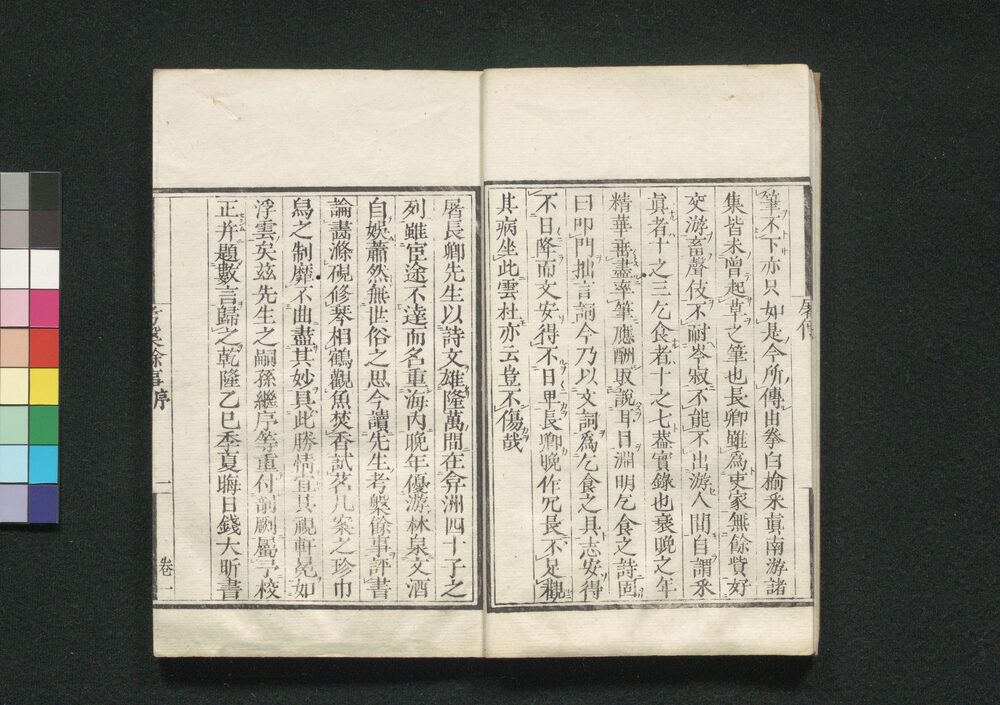 筆不下亦只如是今所傳由拳白榆釆眞南游諸
集皆未曾起草之筆也長卿雖爲吏家無餘貲好
交游畜聲伎不耐岑寂不能不出游人間自謂釆
眞者十之三乞食者十之七葢實錄也衰晚之年
精華垂盡率筆應酬取說耳目淵明乞食之詩固
曰叩門拙言詞今乃以文詞爲乞食之具志安得
不日降而文安得不日卑長卿晚作冗長不足觀
其病坐此雲杜亦云豈不傷哉
屠傳
屠長卿先生以詩文雄隆萬間在弇洲四十子之
列雖宦途不達而名重海內晚年優游林泉文酒
自娛蕭然無世俗之思今讀先生考槃餘事評書
論畵滌硯修琴相鶴觀魚焚香試茗几案之珍巾
舃之制靡不曲盡其妙具此勝情宜其視軒冕如
浮雲矣玆先生之嗣孫繼序等重付剞劂屬予校
正并題數言歸之乾隆乙巳季夏晦日錢大昕書
考槃餘事序
一
卷一